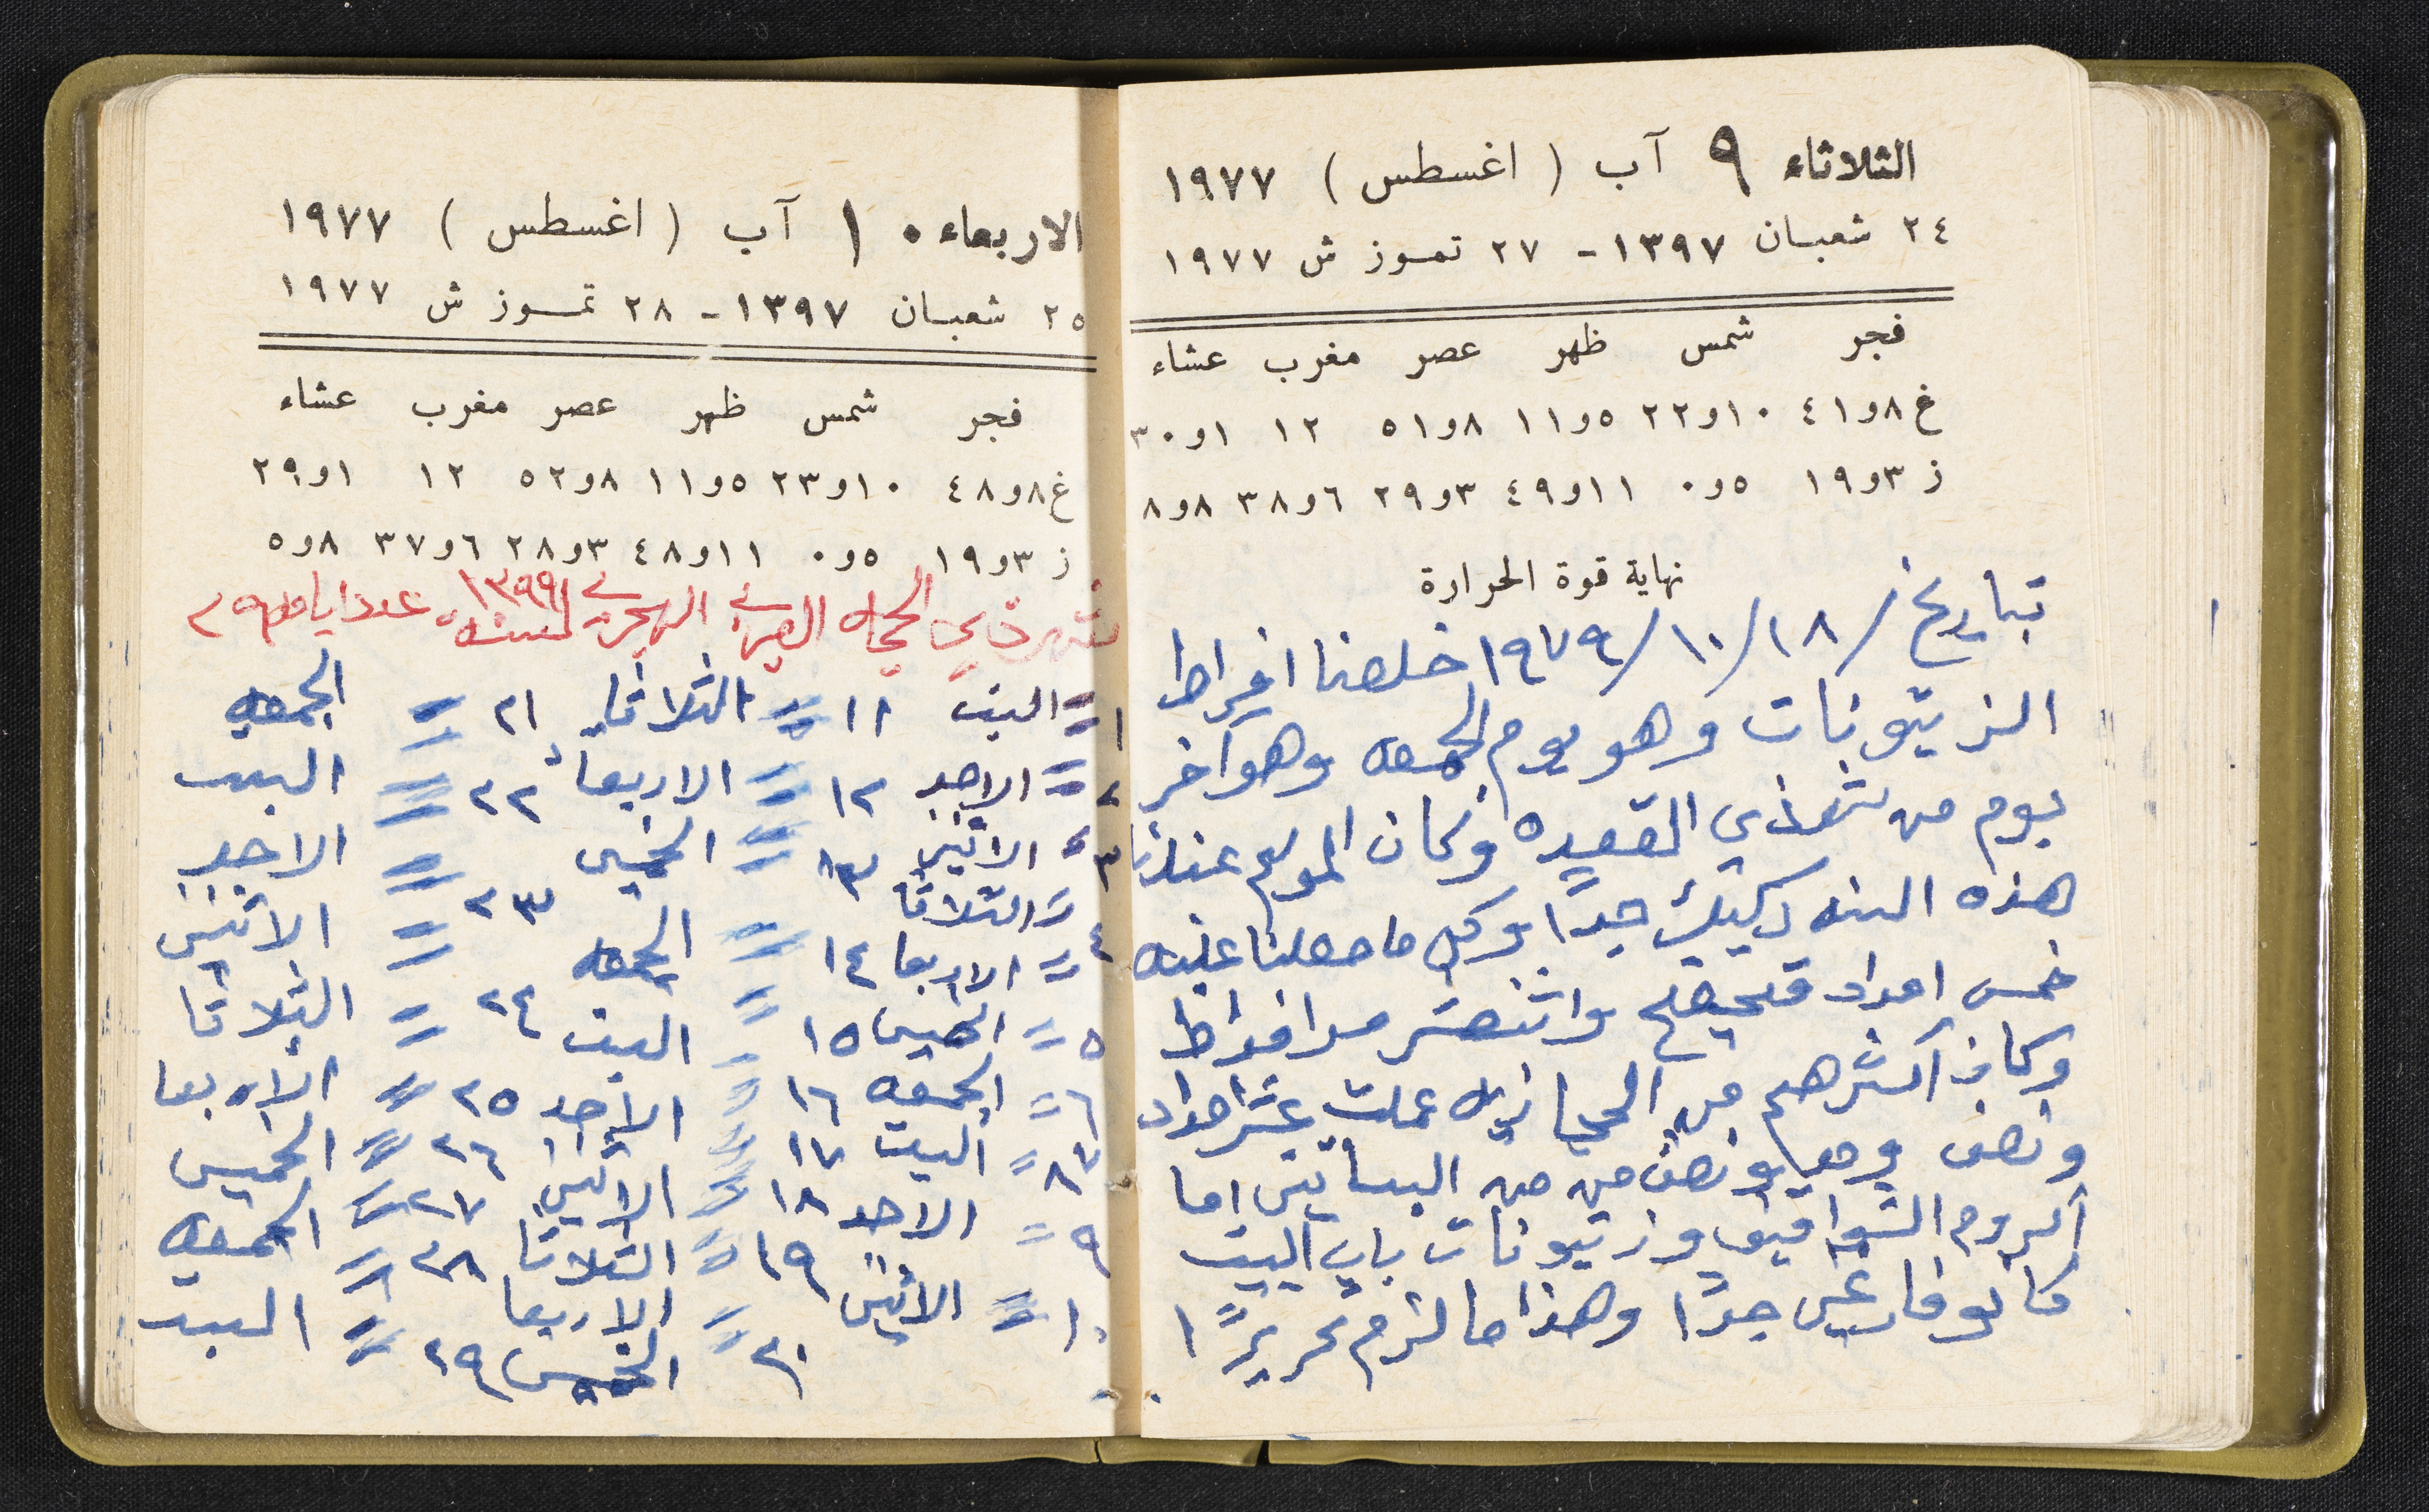 الثلاثاء ٩ آب ( اغسطس ) ١٩٧٧
٢٤ شعبان ١٣٩٧ - ٢٧ تموز ش ١٩٧٧
فجر شمس ظهر عصر مغرب عشاء
غ ٨و٤١ ١٠و٢٢ ٥و١١ ٨و٥١ ١٢ ١و٣٠
ز ٣و١٩ ٥و٠ ١١و٤٩ ٣و٢٩ ٦و٣٨ ٨و٨
نهاية قوة الحرارة
بتاريخ / ١٨/ ١٠/ ١٩٧٩ خلصنا افراط
الزيتونات وهو يوم الجمعه وهو آخر
يوم من شهر ذي القعيده وكان الموسم عندنا
هذه السنه ركيك جدًا وكل ما حصلنا عليه
خمس امداد قحيقح واثنعشر مد افراط
وكان اكثرهم من المجانزيه عملت عشر امداد
ونصف ومد ونصف من من البساتين اما
اكروم الشواقيق وزتيونات باب البيت
كانو فارغين جدًا وهذا ما لزم تحريرً ا
الاربعاء ١٠ آب ( اغسطس ) ١٩٧٧
٢٥ شعبان ١٣٩٧ - ٢٨ تموز ش ١٩٧٧
فجر شمس ظهر عصر مغرب عشاء
غ ٨و٤٨ ١٠و٢٣ ٥و١١ ٨و٥٢ ١٢ ١و٢٩
ز ٣و١٩ ٥و٠ ١١و٤٨ ٣و٢٨ ٦و٣٧ ٨و٥
شهر ذي الحجه العربي الهجري لسنة ١٣٩٩ عدد ايامه ٢٩
١ = السبت ١١ = الثلاثا ٢١ = الجمعه
٢ = الاحد ١٢ = الاربعا ٢٢ = السبت
٣ = الاثنين ١٣ = الخميس ٢٣ = الاحد
٤ = الثلاثا ١٤ = الجمعه ٢٤ = الاثنين
٥ = الاربعا ١٥ = السبت ٢٥ = الثلاثا
٦ = الخميس ١٦ = الاحد ٢٦ = الاربعا
٧ = الجمعه ١٧ = الاثنين ٢٧ = الخميس
٨ = السبت ١٨ = الثلاثا ٢٨ = الجمعه
٩ = الاحد ١٩ = الاربعا ٢٩ = السبت
١٠ = الاثنين ٢٠ = الخميس